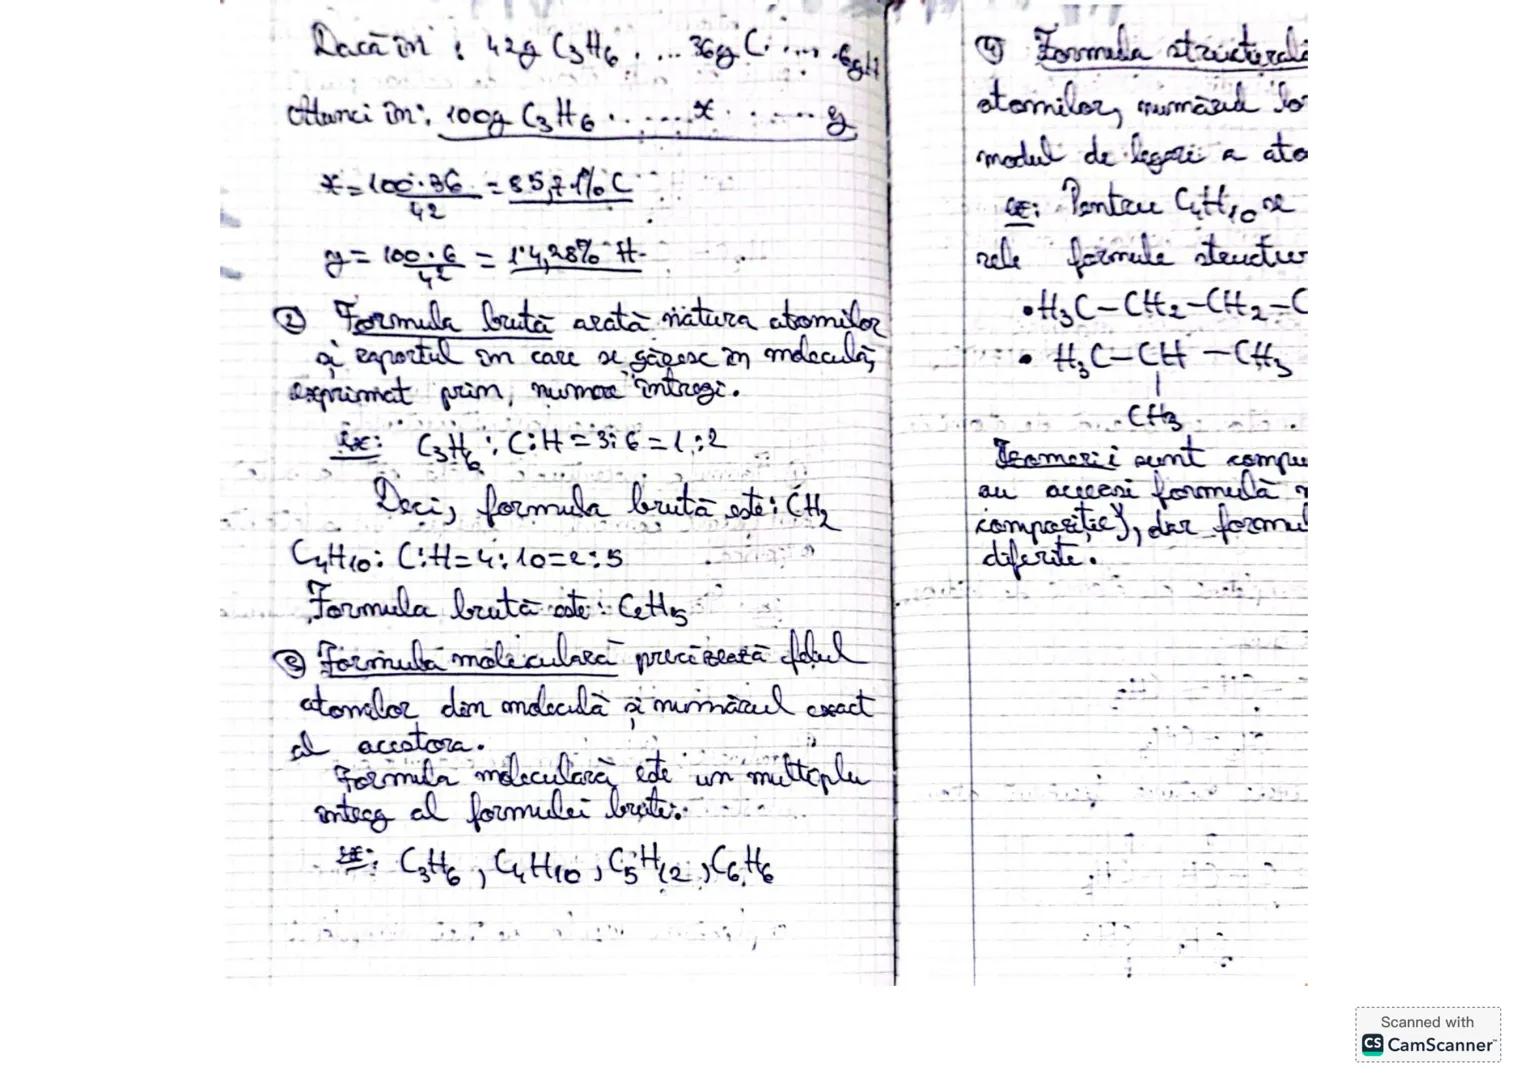 Dacă în : 42g C₃H₆ .... 36g C ..... 6g H
Atunci în: 100g C₃H₆ ........ x ........ y
x = 100·36 / 42 = 85,71% C
y = 100·6 / 42 = 14,28% H
② Formula brută arată natura atomilor
și raportul în care se găsesc în moleculă,
exprimat prin numere întregi.
ex: C₃H₆ : C:H = 3:6 = 1:2
Deci, formula brută este: CH₂
C₄H₁₀: C:H = 4:10 = 2:5
Formula brută este: C₂H₅
③ Formula moleculară precizează felul
atomilor din moleculă și numărul exact
al acestora.
Formula moleculară este un multiplu
întreg al formulei brute.
ex: C₃H₆, C₄H₁₀, C₅H₁₂, C₆H₆
④ Formula structurală
atomilor, numărul lor
modul de legare a ato
ex: Pentru C₄H₁₀ se
rele formule structur
• H₃C-CH₂-CH₂-C
• H₃C-CH-CH₃
|
CH₃
Izomerii sunt compu
au aceeași formulă m
compoziție), dar formul
diferite.
Scanned with
CS CamScanner